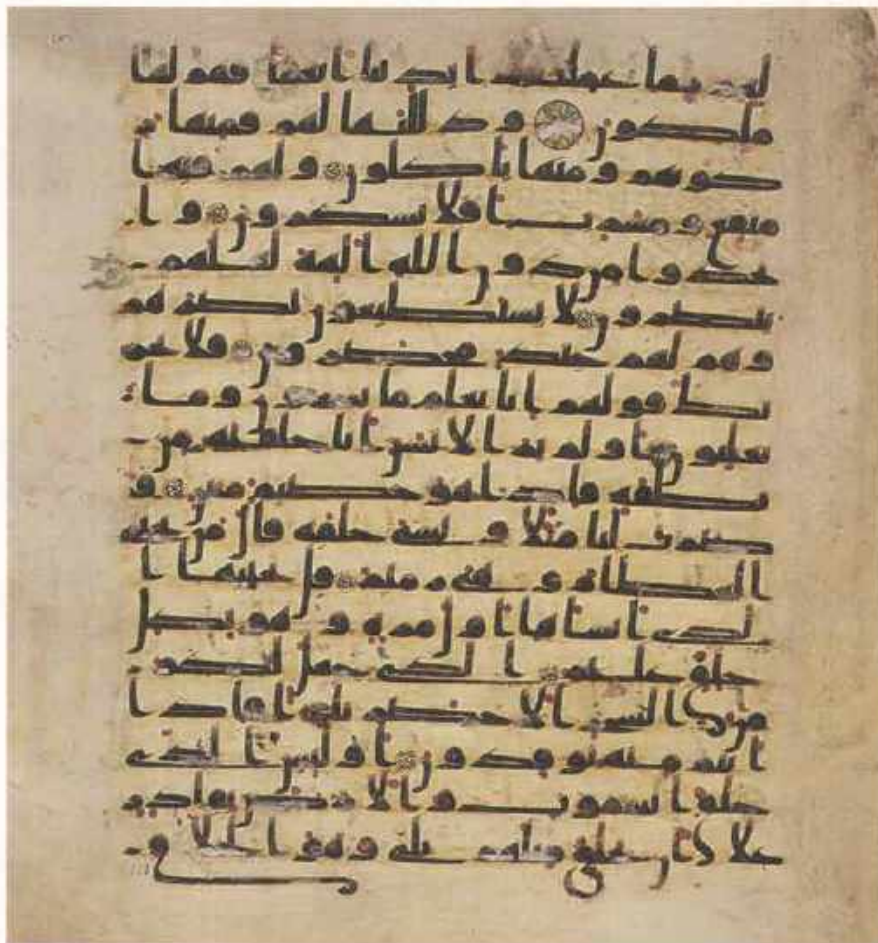 لهم مما عملت ايدينا انعاما فهم لها
ملكون وذللنها لهم فمنها ر
كوبهم ومنها ياكلون ولهم فيها
منفع ومشرب افلا يشكرون وا
تخذوا من دون الله الهة لعلهم
ينصرون لا يستطيعون نصرهم
وهم لهم جند محضرون فلا يحز
نك قولهم انا نعلم ما يسرون وما
يعلنون اولم ير الانسن انا خلقنه من
نطفة فاذا هو خصيم مبين و
ضرب لنا مثلا ونسى خلقه قال من يحى
العظام وهى رميم قل يحييها ا
لذى انشاها اول مرة وهو بكل
خلق عليم الذى جعل لكم
من الشجر الاخضر نارا فاذا
انتم منه توقدون اوليس الذى
خلق السموت والارض بقادر
على ان يخلق مثلهم بلى وهو الخلاق